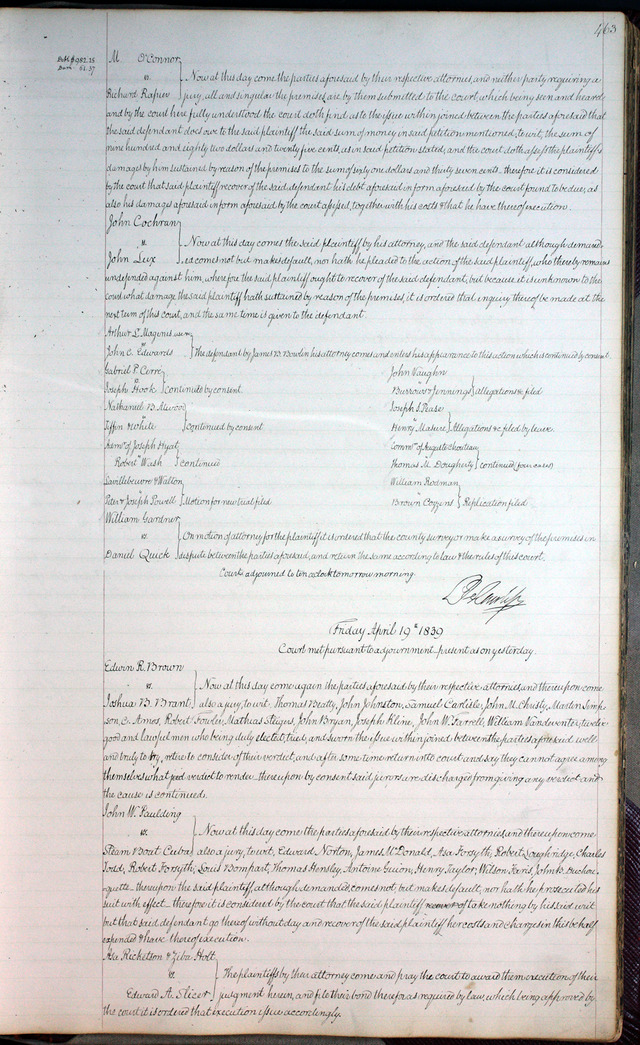 463
M. O'Connor
Debt $982.25
Dam 61.37
vs. Now at this day come the parties aforesaid by their respective attornies, and neither party requiring a
Richard Rapier jury, all and singular the premises, are by them submitted to the court, which being seen and heard
and by the court here fully understood the court doth find as to the issue within joined between the parties aforesaid that
the said defendant does owe to the said plaintiff the said sum of money in said petition mentioned, to wit, the sum of
nine hundred and eighty two dollars and twenty five cents, as in said petition stated, and the court doth assess the plaintiff's
damages by him sustained by reason of the premises to the sum of sixty one dollars and thirty seven cents. therefore it is considered
by the court that said plaintiff recover of the said defendant his debt aforesaid in form aforesaid by the court found to be due, as
also his damages aforesaid in form aforesaid by the court assessed, together with his costs & that he have thereof execution.
John Cochran
vs. Now at this day comes the said plaintiff by his attorney, and the said defendant although demand
John Lux ed comes not but makes default, nor hath he pleaded to the action of the said plaintiff, who thereby remains
undefended against him, wherefore the said plaintiff ought to recover of the said defendant; but because it is unknown to the
court what damage the said plaintiff hath sustained by reason of the premises, it is ordered that inquiry thereof be made at the
next term of this court, and the same time is given to the defendant.
Arthur L. Magenis
vs
John C. Edwards The defendant by James B. Bowlin his attorney comes and enters his appearance to this action which is continued by consent
Gabriel P. Cerre
vs
Joseph Hook continued by consent
Nathaniel B. Atwood
vs
Tiffin & White continued by consent
Adm'r of Joseph Hyat
vs
Robert Wash continued
Lavillebeuvre & Walton
vs
Peter & Joseph Powell Motion for new trial filed
John Vaughn
vs
Burrows & Jennings allegations &c filed
Joseph S. Pease
vs
Henry Masure Allegations &c filed by leave.
of Auguste Chouteau
vs
Thomas M. Dougherty continued (four cases)
William Rodman
vs
Brown Cozzens Replication filed
William Gardner
vs. On motion of attorney for the plaintiff it is ordered that the county surveyor make a survey of the premises in
Daniel Quick dispute between the parties aforesaid, and return the same according to law & the rules of this court.
Court adjourned to ten oclock tomorrow morning.
Friday April 19th 1839
Court met pursuant to adjournment present as on yesterday.
Edwin R. Brown
vs. Now at this day come again the parties aforesaid by their respective attornies and thereupon come
Joshua B. Brant also a jury, to wit, Thomas Beatty, John Johnston, Samuel Carlisle, John M. Chusty, Marten Simp
son, E. Ames, Robert Fowler, Mathias Steges, John Bryan, Joseph Kline, John W. Farrell, William Vandeventer, twelve
good and lawful men who being duly elected, tried, and sworn the issue within joined between the parties aforesaid well
and truly to try, retire to consider of their verdict, and after some time return into court and say they cannot agree among
themselves what verdict to render. thereupon by consent said jurors are discharged from giving any verdict and
the cause is continued.
John W. Paulding
vs. Now at this day come the parties aforesaid by their respective attornies, and thereupon come
Steam Boat Cuba also a jury, to wit, Edward Norton, James McDonald, Asa Forsyth, Robert Loughridge, Charles
Todd, Robert Forsyth, Louis Bompart, Thomas Hensley, Antoine Guion, Henry Taylor, Wilson Faris, John
thereupon the said plaintiff, although demanded, comes not but makes default, nor hath he prosecuted his
suit with effect. therefore it is considered by the court that the said plaintiff recover of take nothing by his said writ
but that said defendant go thereof without day and recover of the said plaintiff her costs and charges in this behalf
expended & have thereof execution.
Asa Ricketson & Ziba Holt
vs. The plaintiffs by their attorney come and pray the court to award them execution of their
Edward A. Slicer judgment herein, and file their bond therefor as required by law, which being approved by
the court it is ordered that execution issue accordingly.